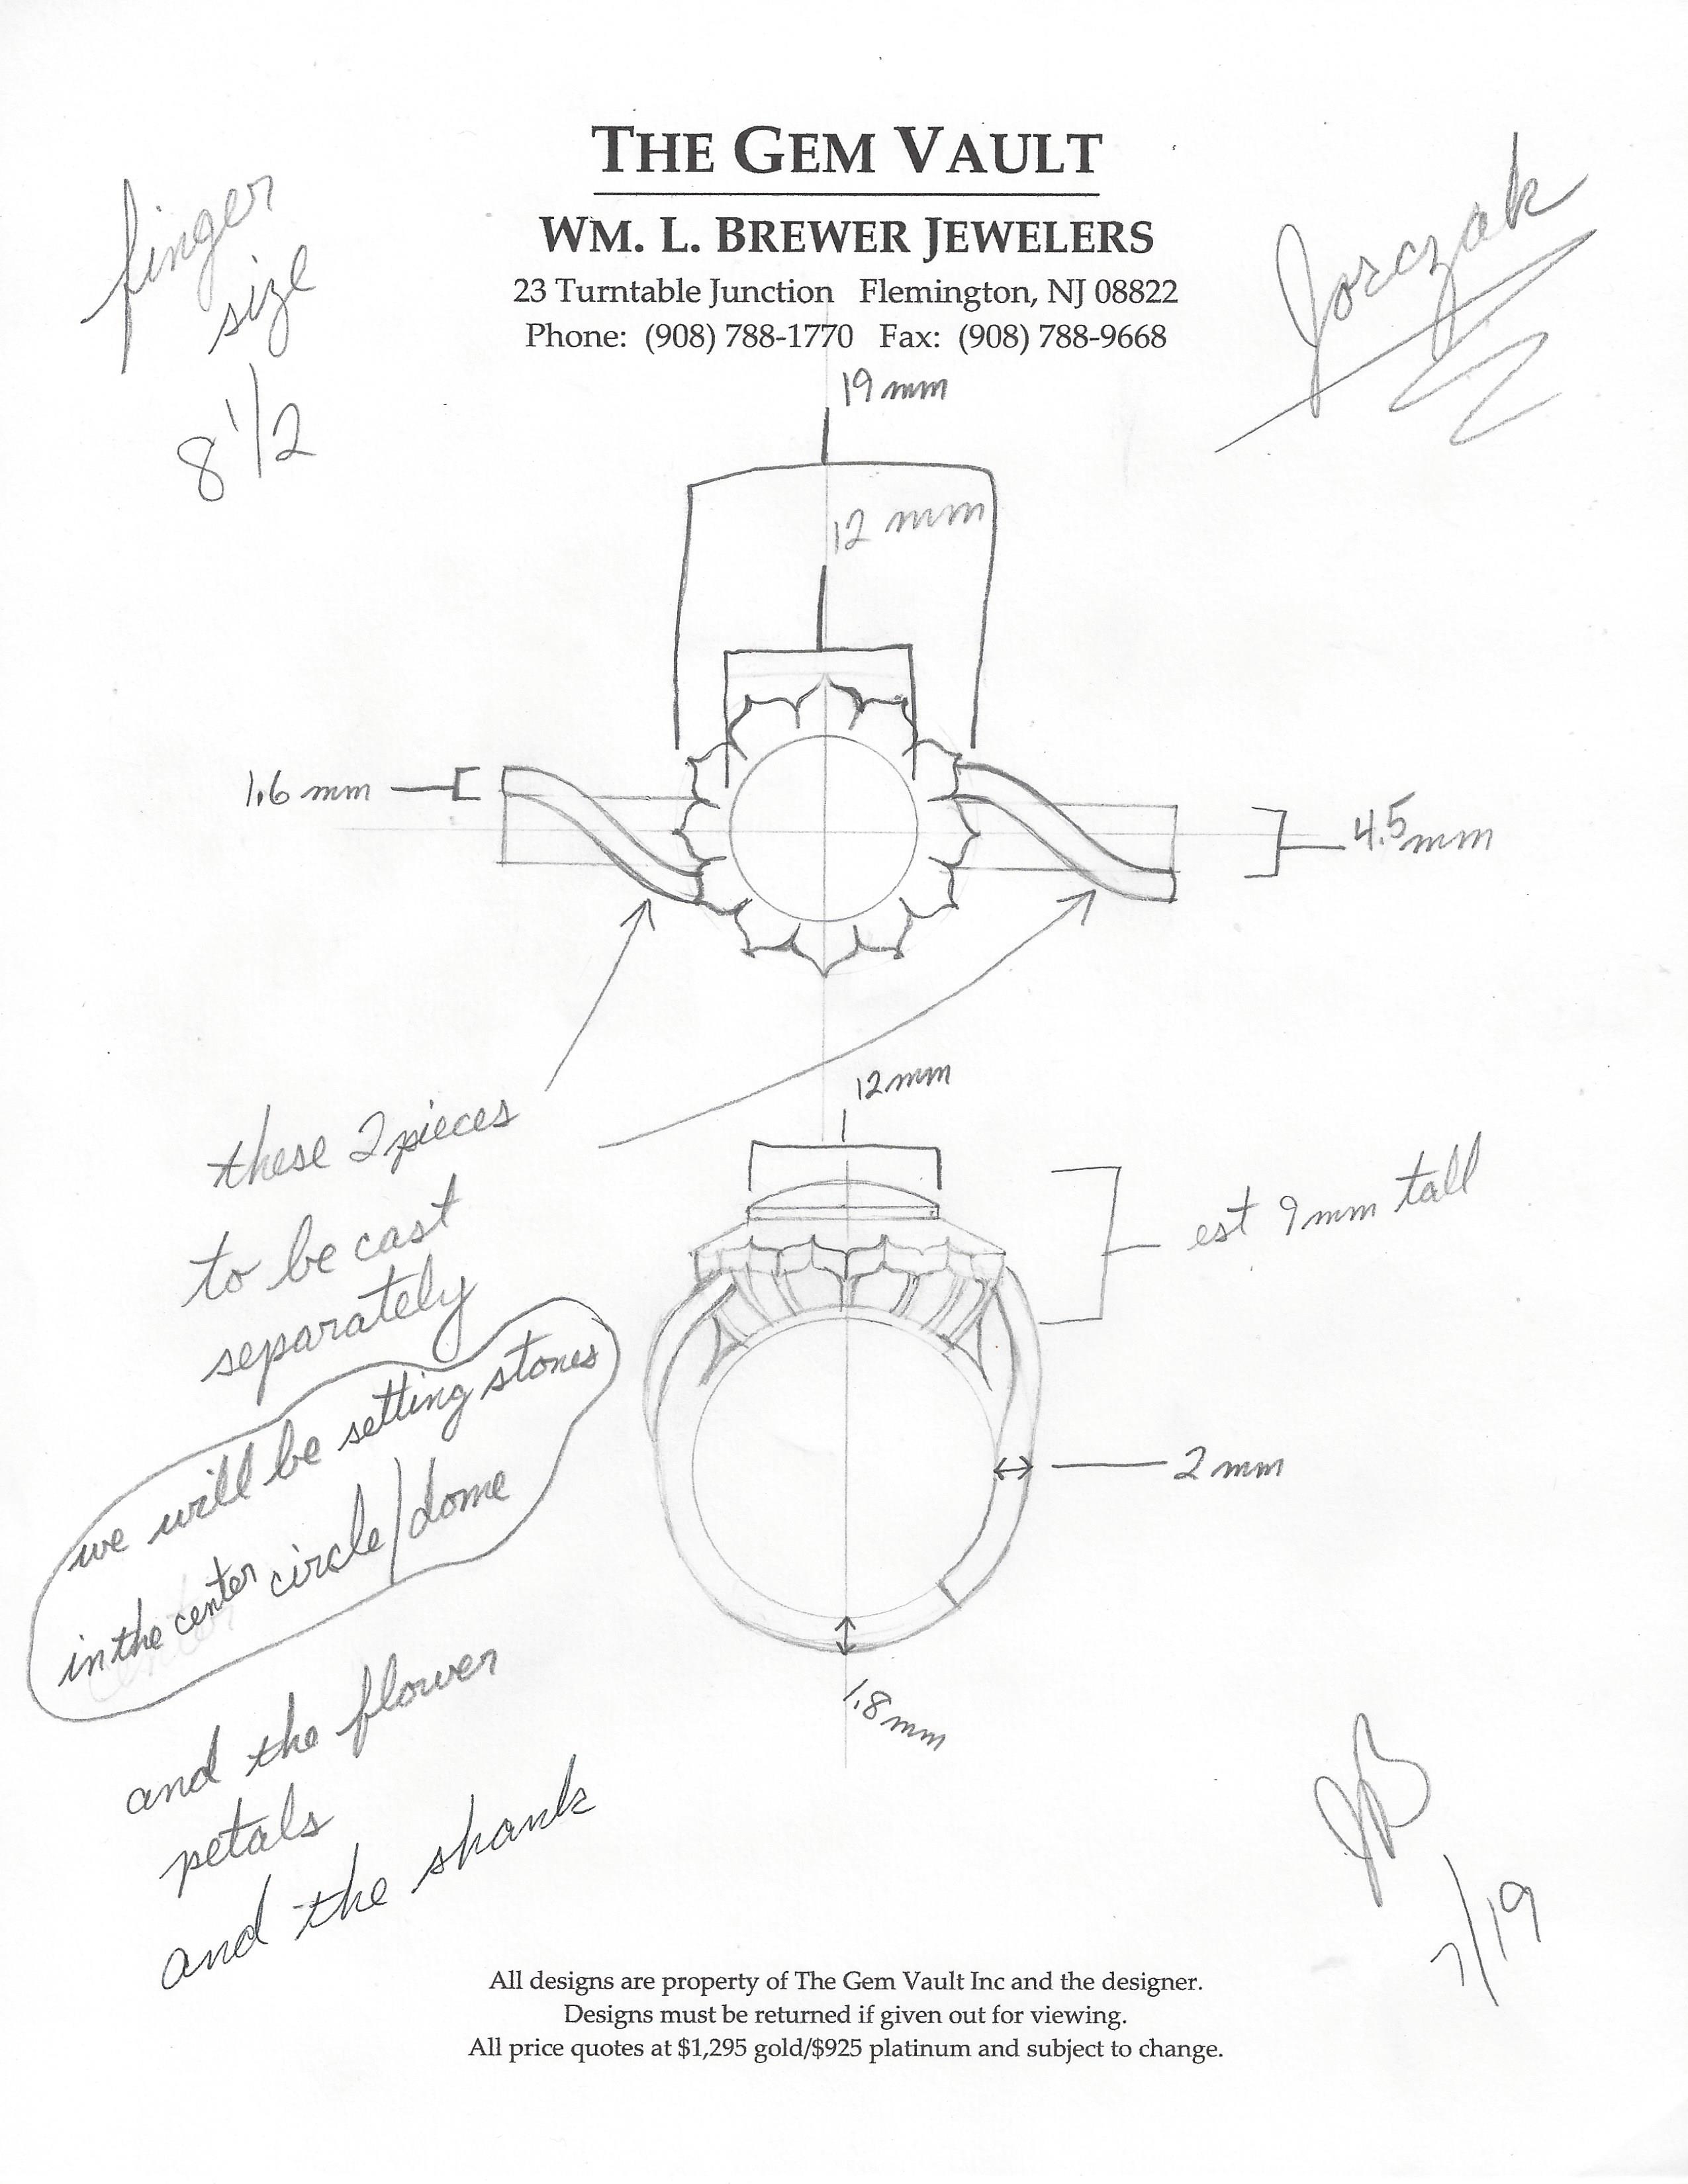 THE GEM VAULT
WM. L. BREWER JEWELERS
23 Turntable Junction Flemington, NJ 08822
Phone: (908) 788-1770 Fax: (908) 788-9668
finger
size
8 1/2
Jorczak
19 mm
12 mm
1.6 mm
4.5 mm
these 2 pieces
to be cast
separately
12 mm
est 9 mm tall
we will be setting stones
in the center circle/dome
and the flower
petals
and the shank
2 mm
1.8 mm
JB
7/19
All designs are property of The Gem Vault Inc and the designer.
Designs must be returned if given out for viewing.
All price quotes at $1,295 gold/$925 platinum and subject to change.